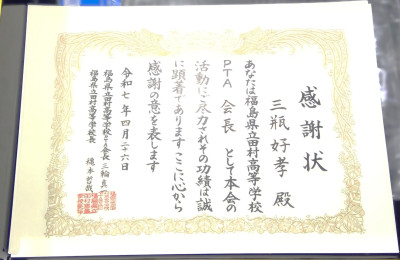 感謝状
三瓶好孝 殿
あなたは福島県立田村高等学校
PTA 会長 として本会の
活動に尽力されその功績は誠
に顕著でありますここに心から
感謝の意を表します
令和七年四月二十六日
福島県立田村高等学校PTA会長 三輪真
福島県立田村高等学校長 橋本